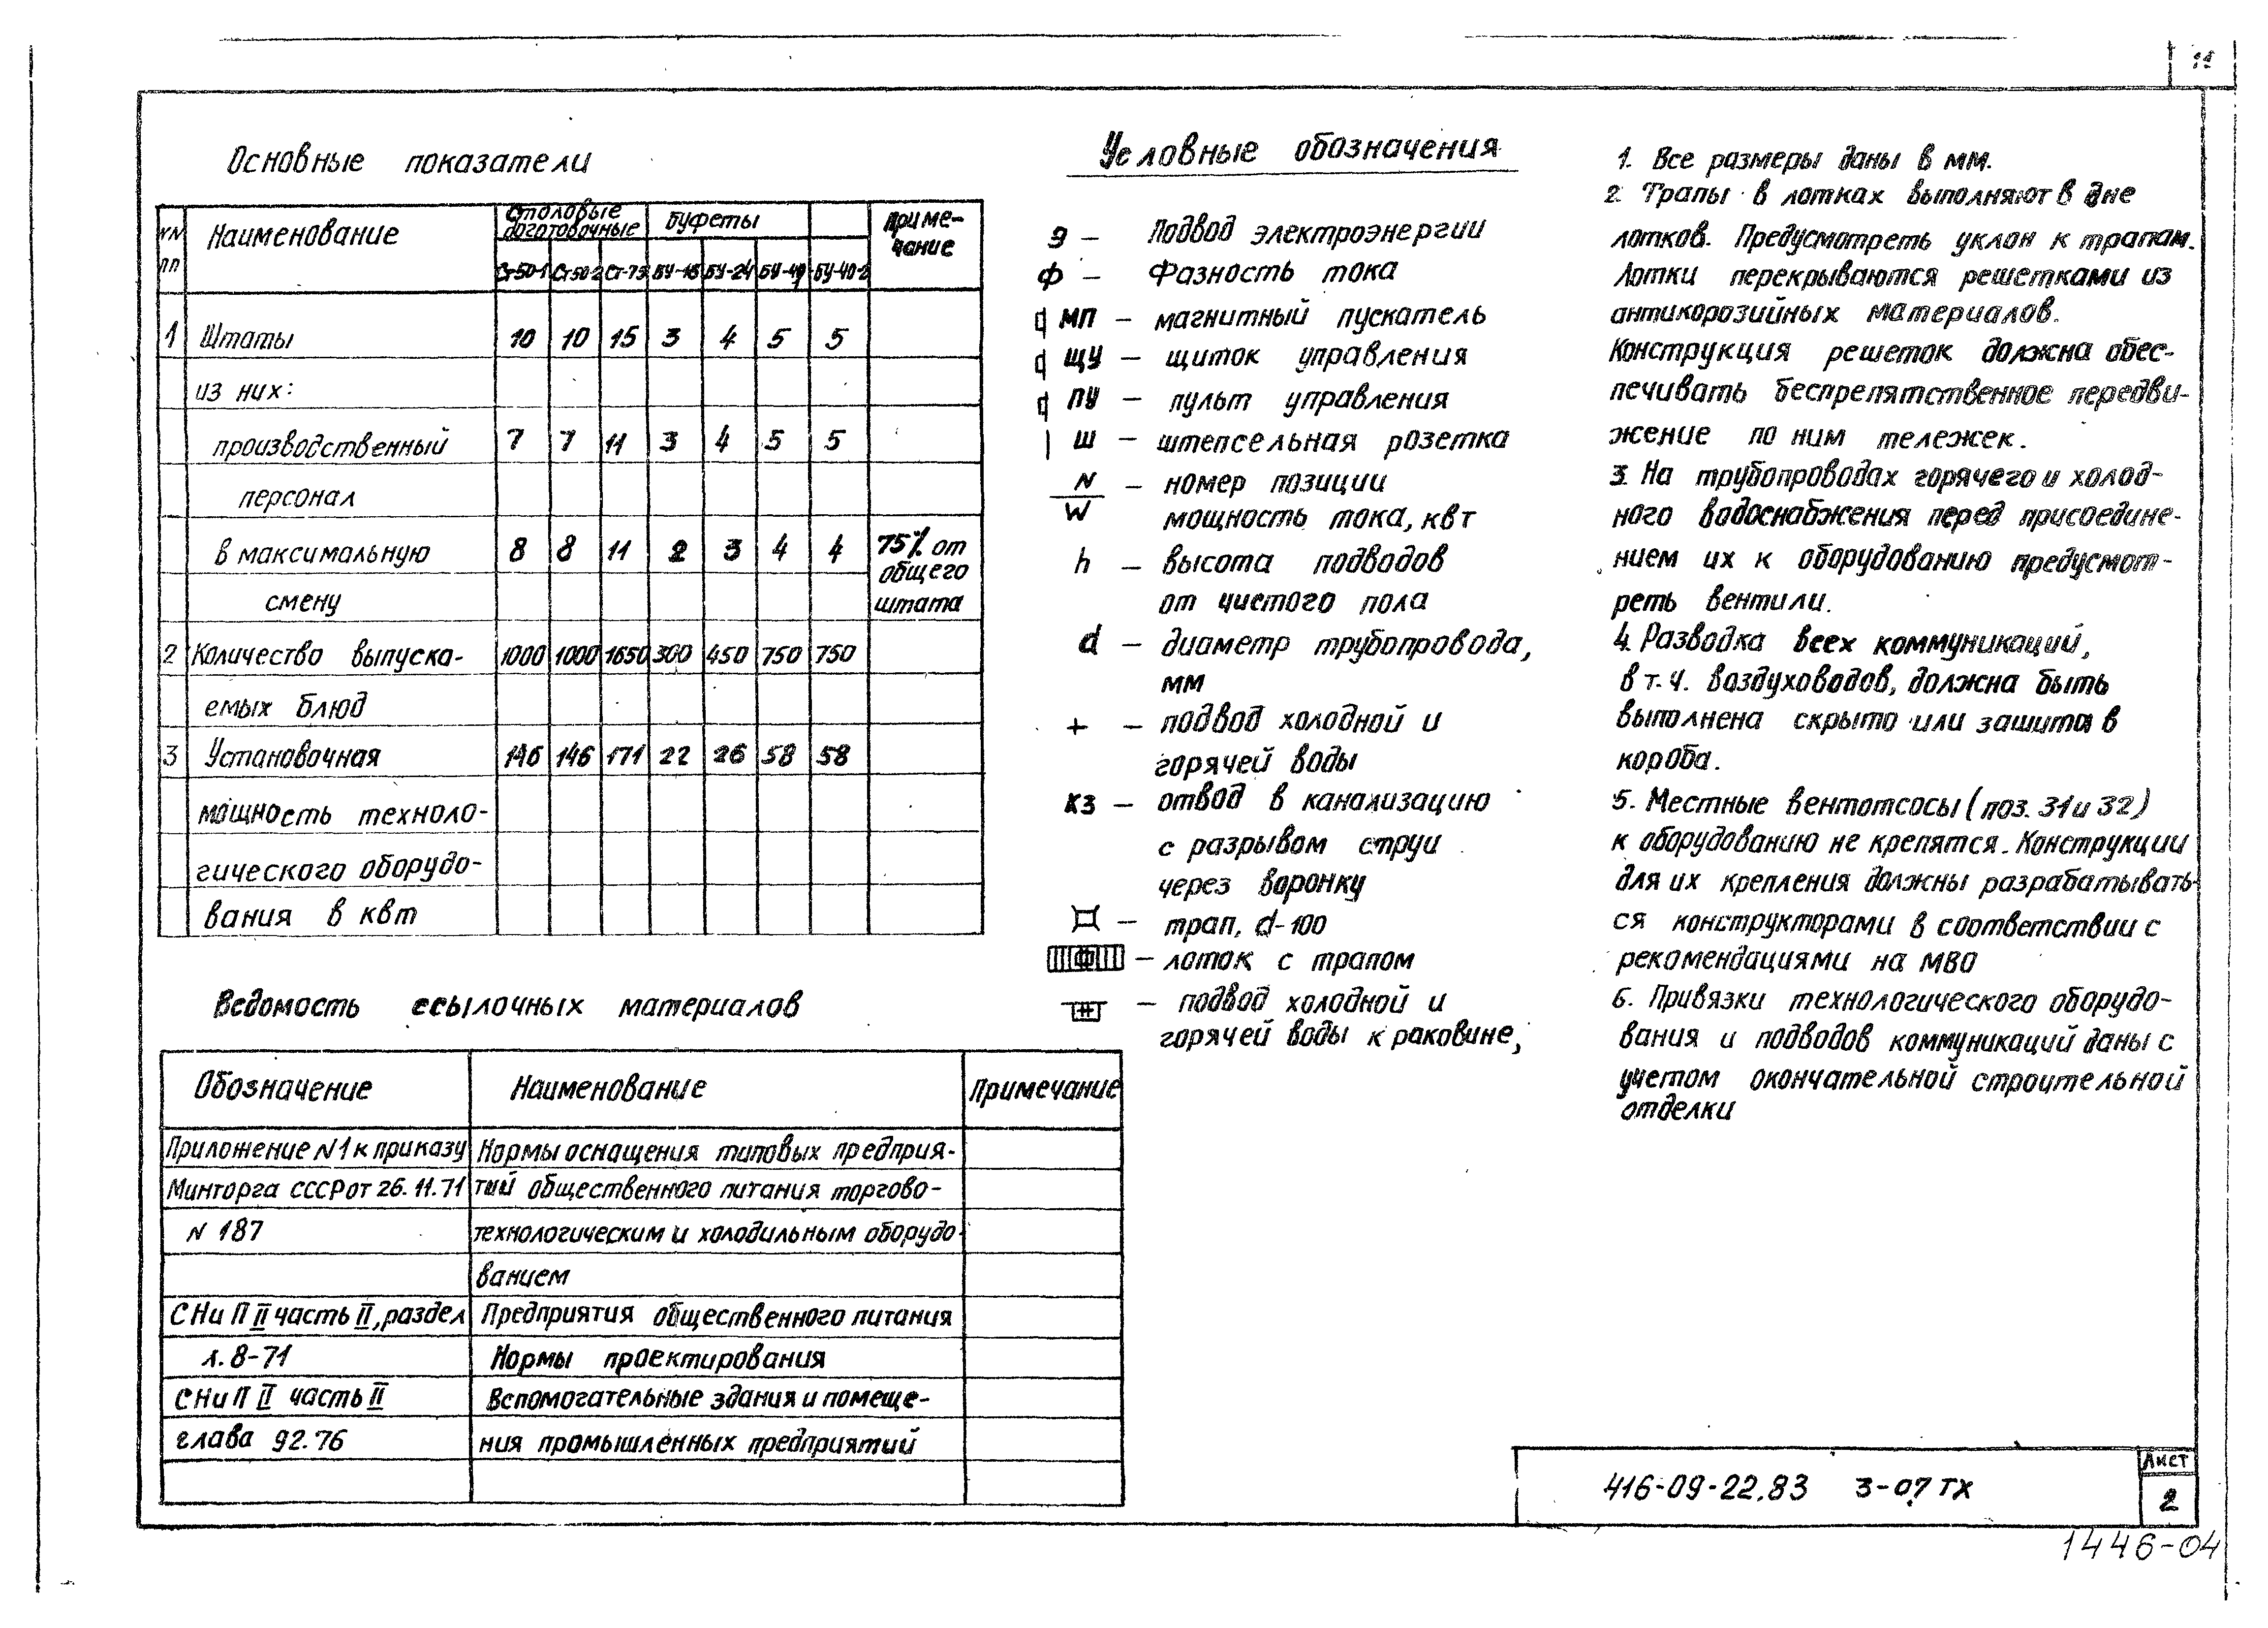 Основные показатели
NN пп Наименование Столовые доготовочные Буфеты Приме-чание
Ст50-1 Ст50-2 Ст-75 БУ-16 БУ-24 БУ-40 БУ-40-2
1 Штаты 10 10 15 3 4 5 5
из них:
производственный 7 7 11 3 4 5 5
персонал
в максимальную 8 8 11 2 3 4 4 75% от
общего
смену штата
2 Количество выпуска- 1000 1000 1650 300 450 750 750
емых блюд
3 Установочная 146 146 171 22 26 58 58
мощность техноло-
гического оборудо-
вания в квт
Ведомость ссылочных материалов
Обозначение Наименование Примечание
Приложение N1 к приказу Нормы оснащения типовых предприя-
Минторга СССР от 26.11.71 тий общественного питания торгово-
N 187 технологическим и холодильным оборудо-
ванием
СНиП II часть II, раздел Предприятия общественного питания
л. 8-71 Нормы проектирования
СНиП II часть II Вспомогательные здания и помеще-
глава 92.76 ния промышленных предприятий
Условные обозначения
э – Подвод электроэнергии
ф – Фазность тока
МП – магнитный пускатель
ЩУ – щиток управления
ПУ – пульт управления
Ш – штепсельная розетка
N – номер позиции
W мощность тока, квт
h – высота подводов
от чистого пола
d – диаметр трубопровода,
мм
+ – подвод холодной и
горячей воды
КЗ – отвод в канализацию
с разрывом струи
через воронку
– трап, d-100
– лоток с трапом
– подвод холодной и
горячей воды к раковине,
1. Все размеры даны в мм.
2. Трапы в лотках выполняют в дне
лотков. Предусмотреть уклон к трапам.
Лотки перекрываются решетками из
антикорозийных материалов.
Конструкция решеток должна обес-
печивать беспрепятственное передви-
жение по ним тележек.
3. На трубопроводах горячего и холод-
ного водоснабжения перед присоедине-
нием их к оборудованию предусмот-
реть вентили.
4. Разводка всех коммуникаций,
в т.ч. воздуховодов, должна быть
выполнена скрыто или зашита в
короба.
5. Местные вентотсосы (поз. 31 и 32)
к оборудованию не крепятся. Конструкции
для их крепления должны разрабатывать-
ся конструкторами в соответствии с
рекомендациями на МВО
6. Привязки технологического оборудо-
вания и подводов коммуникаций даны с
учетом окончательной строительной
отделки
416-09-22.83 3-07 ТХ
Лист
2
1446-04